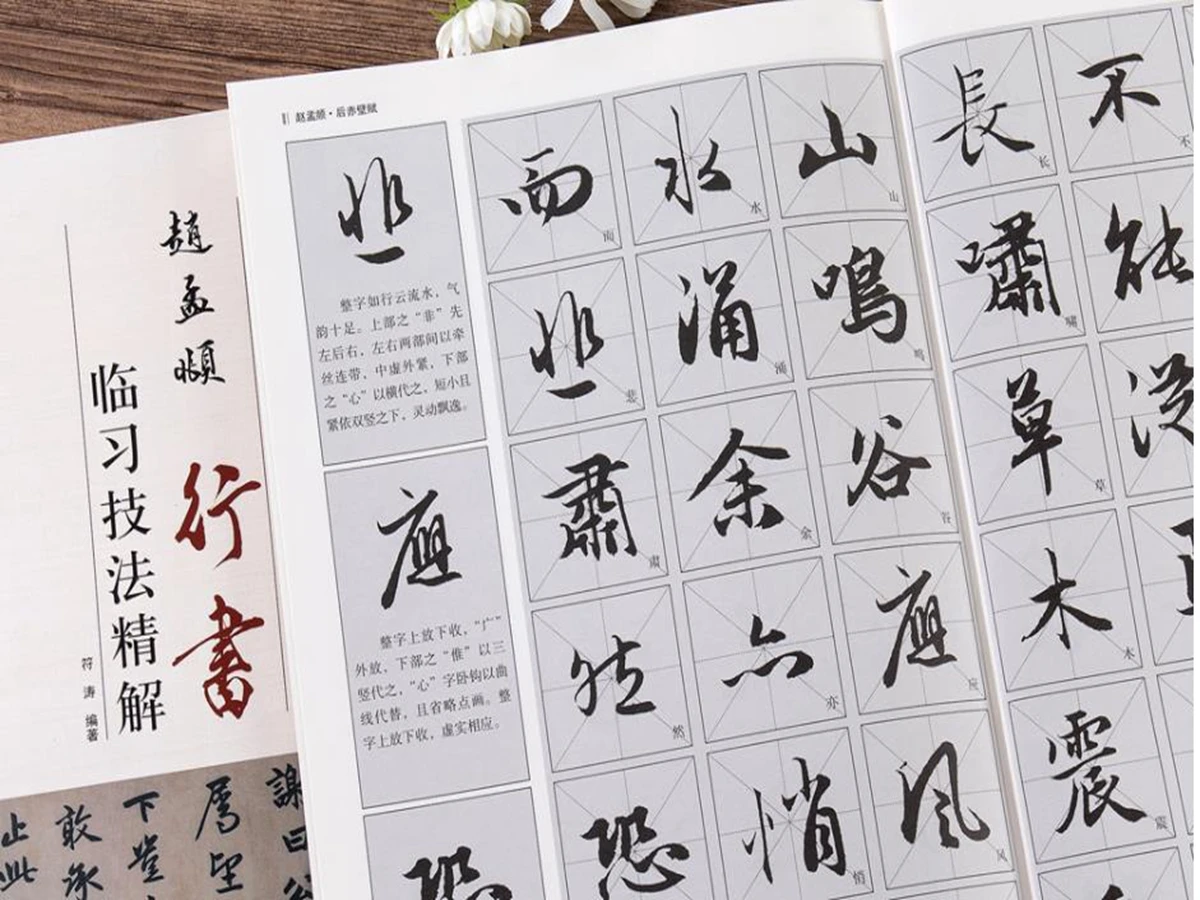 趙孟頫
行書
临习技法精解
符涛 编著
謝曰
下豈
敢承
止此
赵孟頫·后赤壁赋
悲
整字如行云流水,气
韵十足。上部之“非”先
左后右,左右两部间以牵
丝连带,中虚外紧,下部
之“心”以横代之,短小且
紧依双竖之下,灵动飘逸。
應
整字上放下收,“广”
外放,下部之“惟”以三
竖代之,“心”字卧钩以曲
线代替,且省略点画。整
字上放下收,虚实相应。
恐
而 水 山 長 不
而 水 山 长 不
悲 涌 鳴 嘯 能
悲 涌 鸣 啸
肅 余 谷 草 從
肃 余 谷 草
然 亦 應 木
然 亦 应 木
恐 悄 風 震
悄 风 震